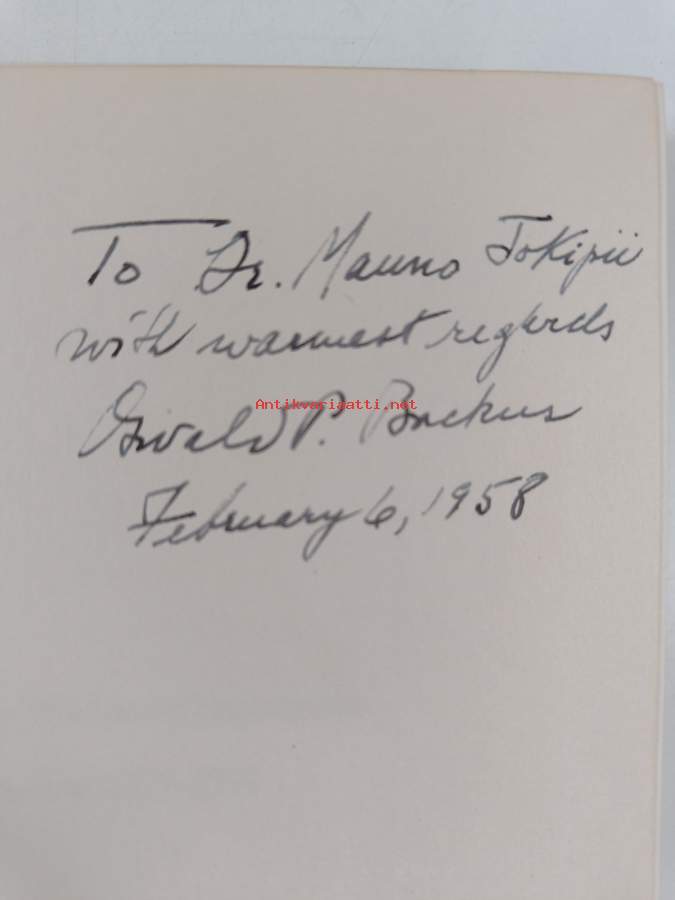 To Dr. Mauno Jokipii
with warmest regards
Antikvariaatti.net
Oswald P. Backus
February 6, 1958